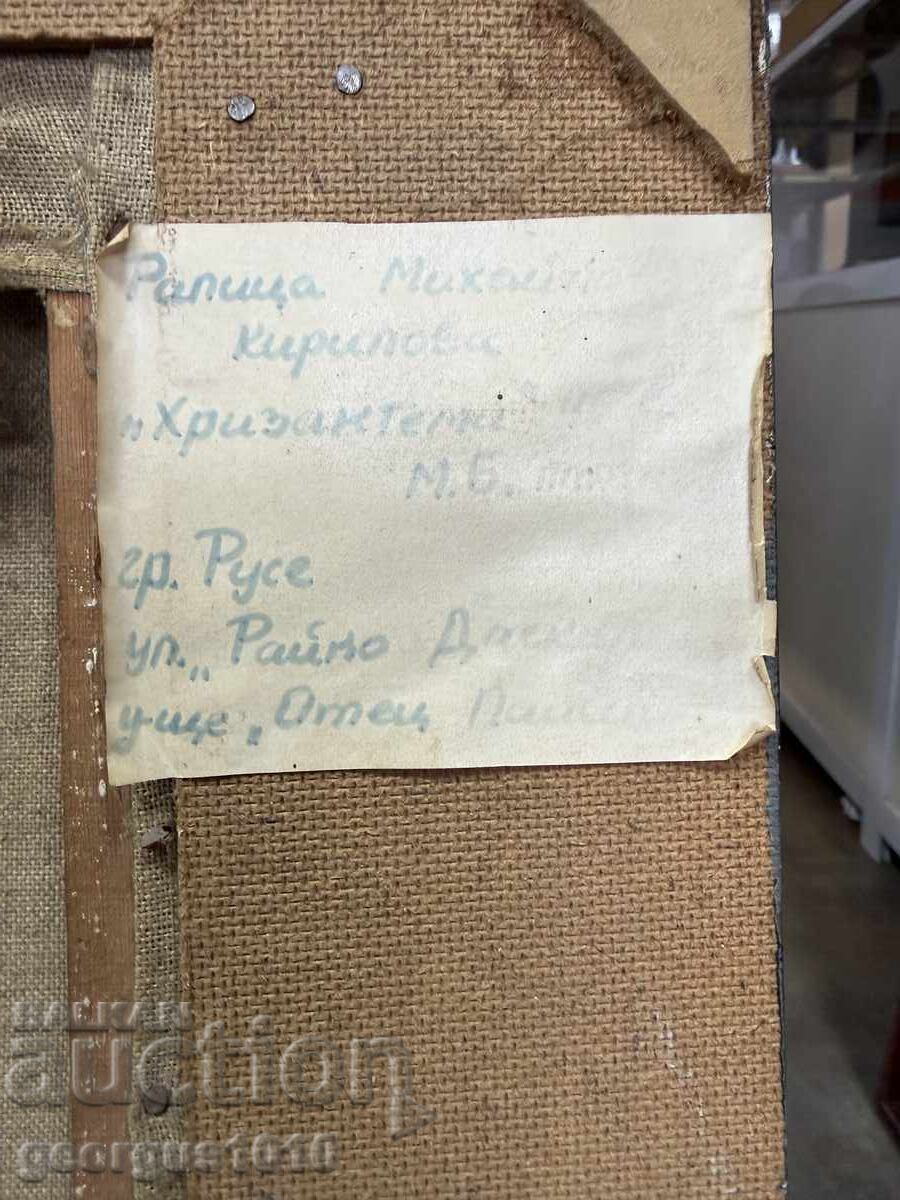 Рапица
Кирилова
„Хризантеми
М.Б.
гр. Русе
ул. „Райно
у-ще „Отец
BALKAN
auction
georgus1010